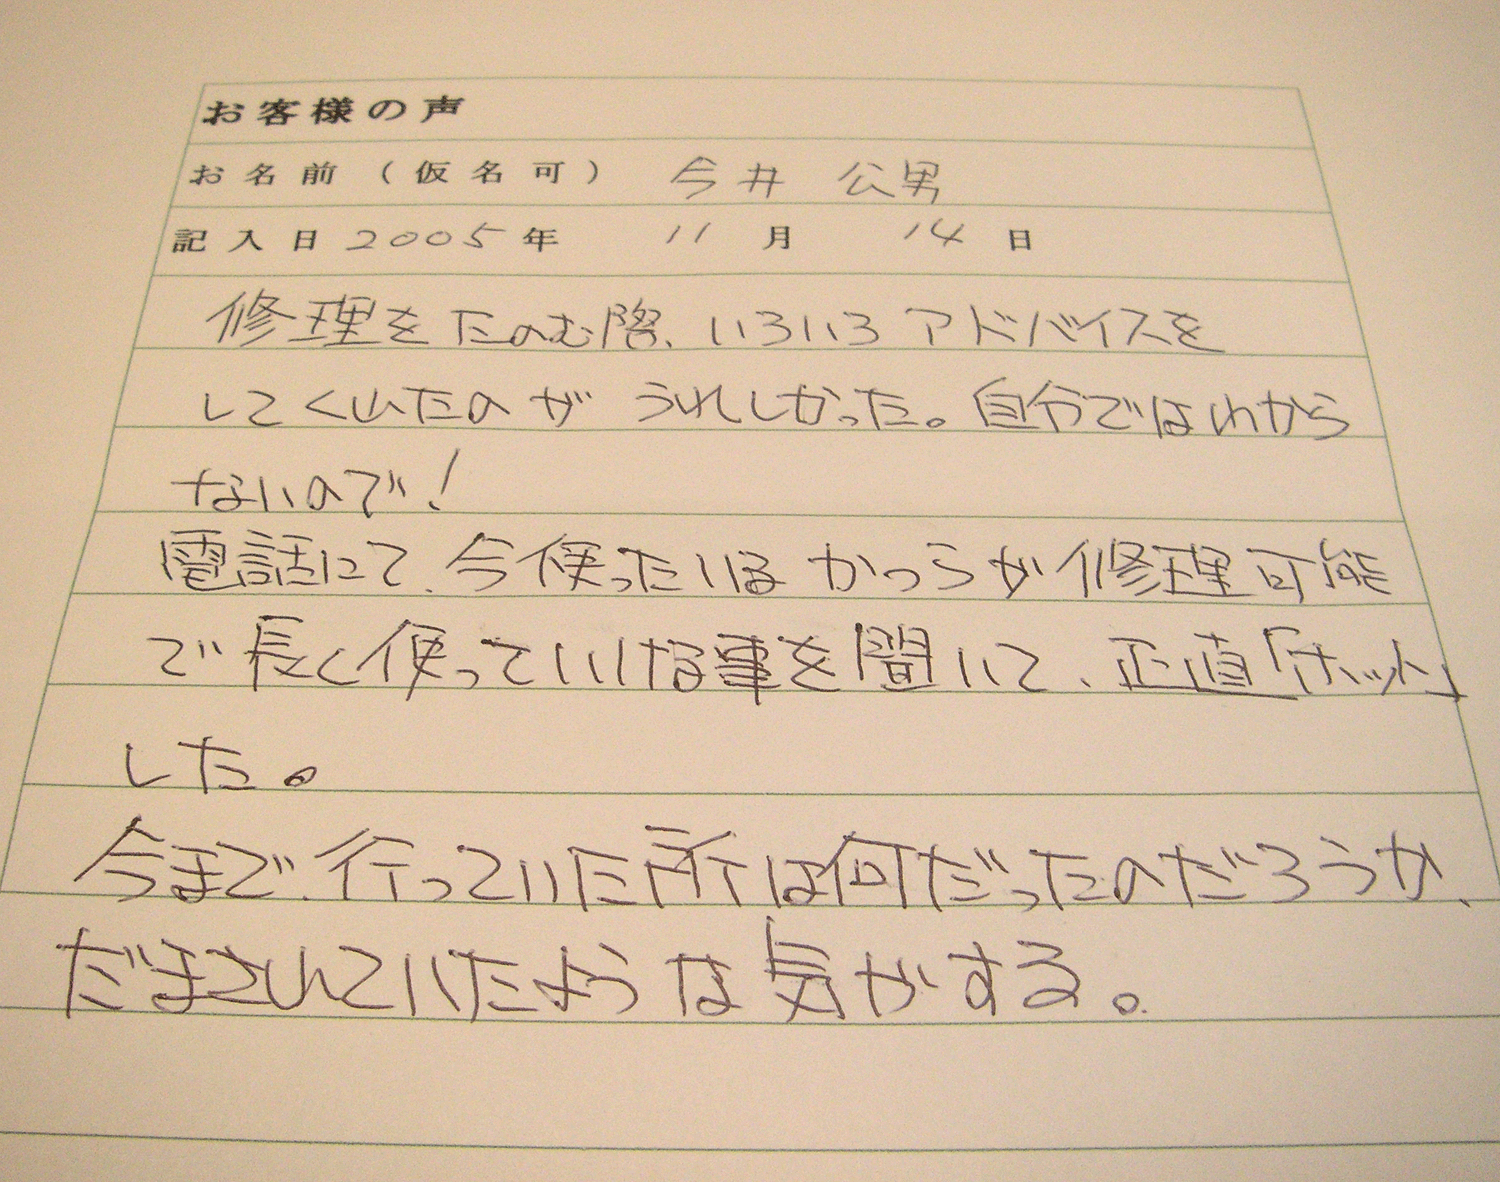 お客様の声
お名前(仮名可) 今井 公男
記入日 2005年 11月 14日
修理をたのむ際、いろいろアドバイスを
してくれたのが うれしかった。自分ではわから
ないので!
電話にて、今使っている かつらが修理可能
で長く使っていける事を聞いて、正直「ホット」
した。
今まで、行っていた所は何だったのだろうか、
だまされていたような気がする。